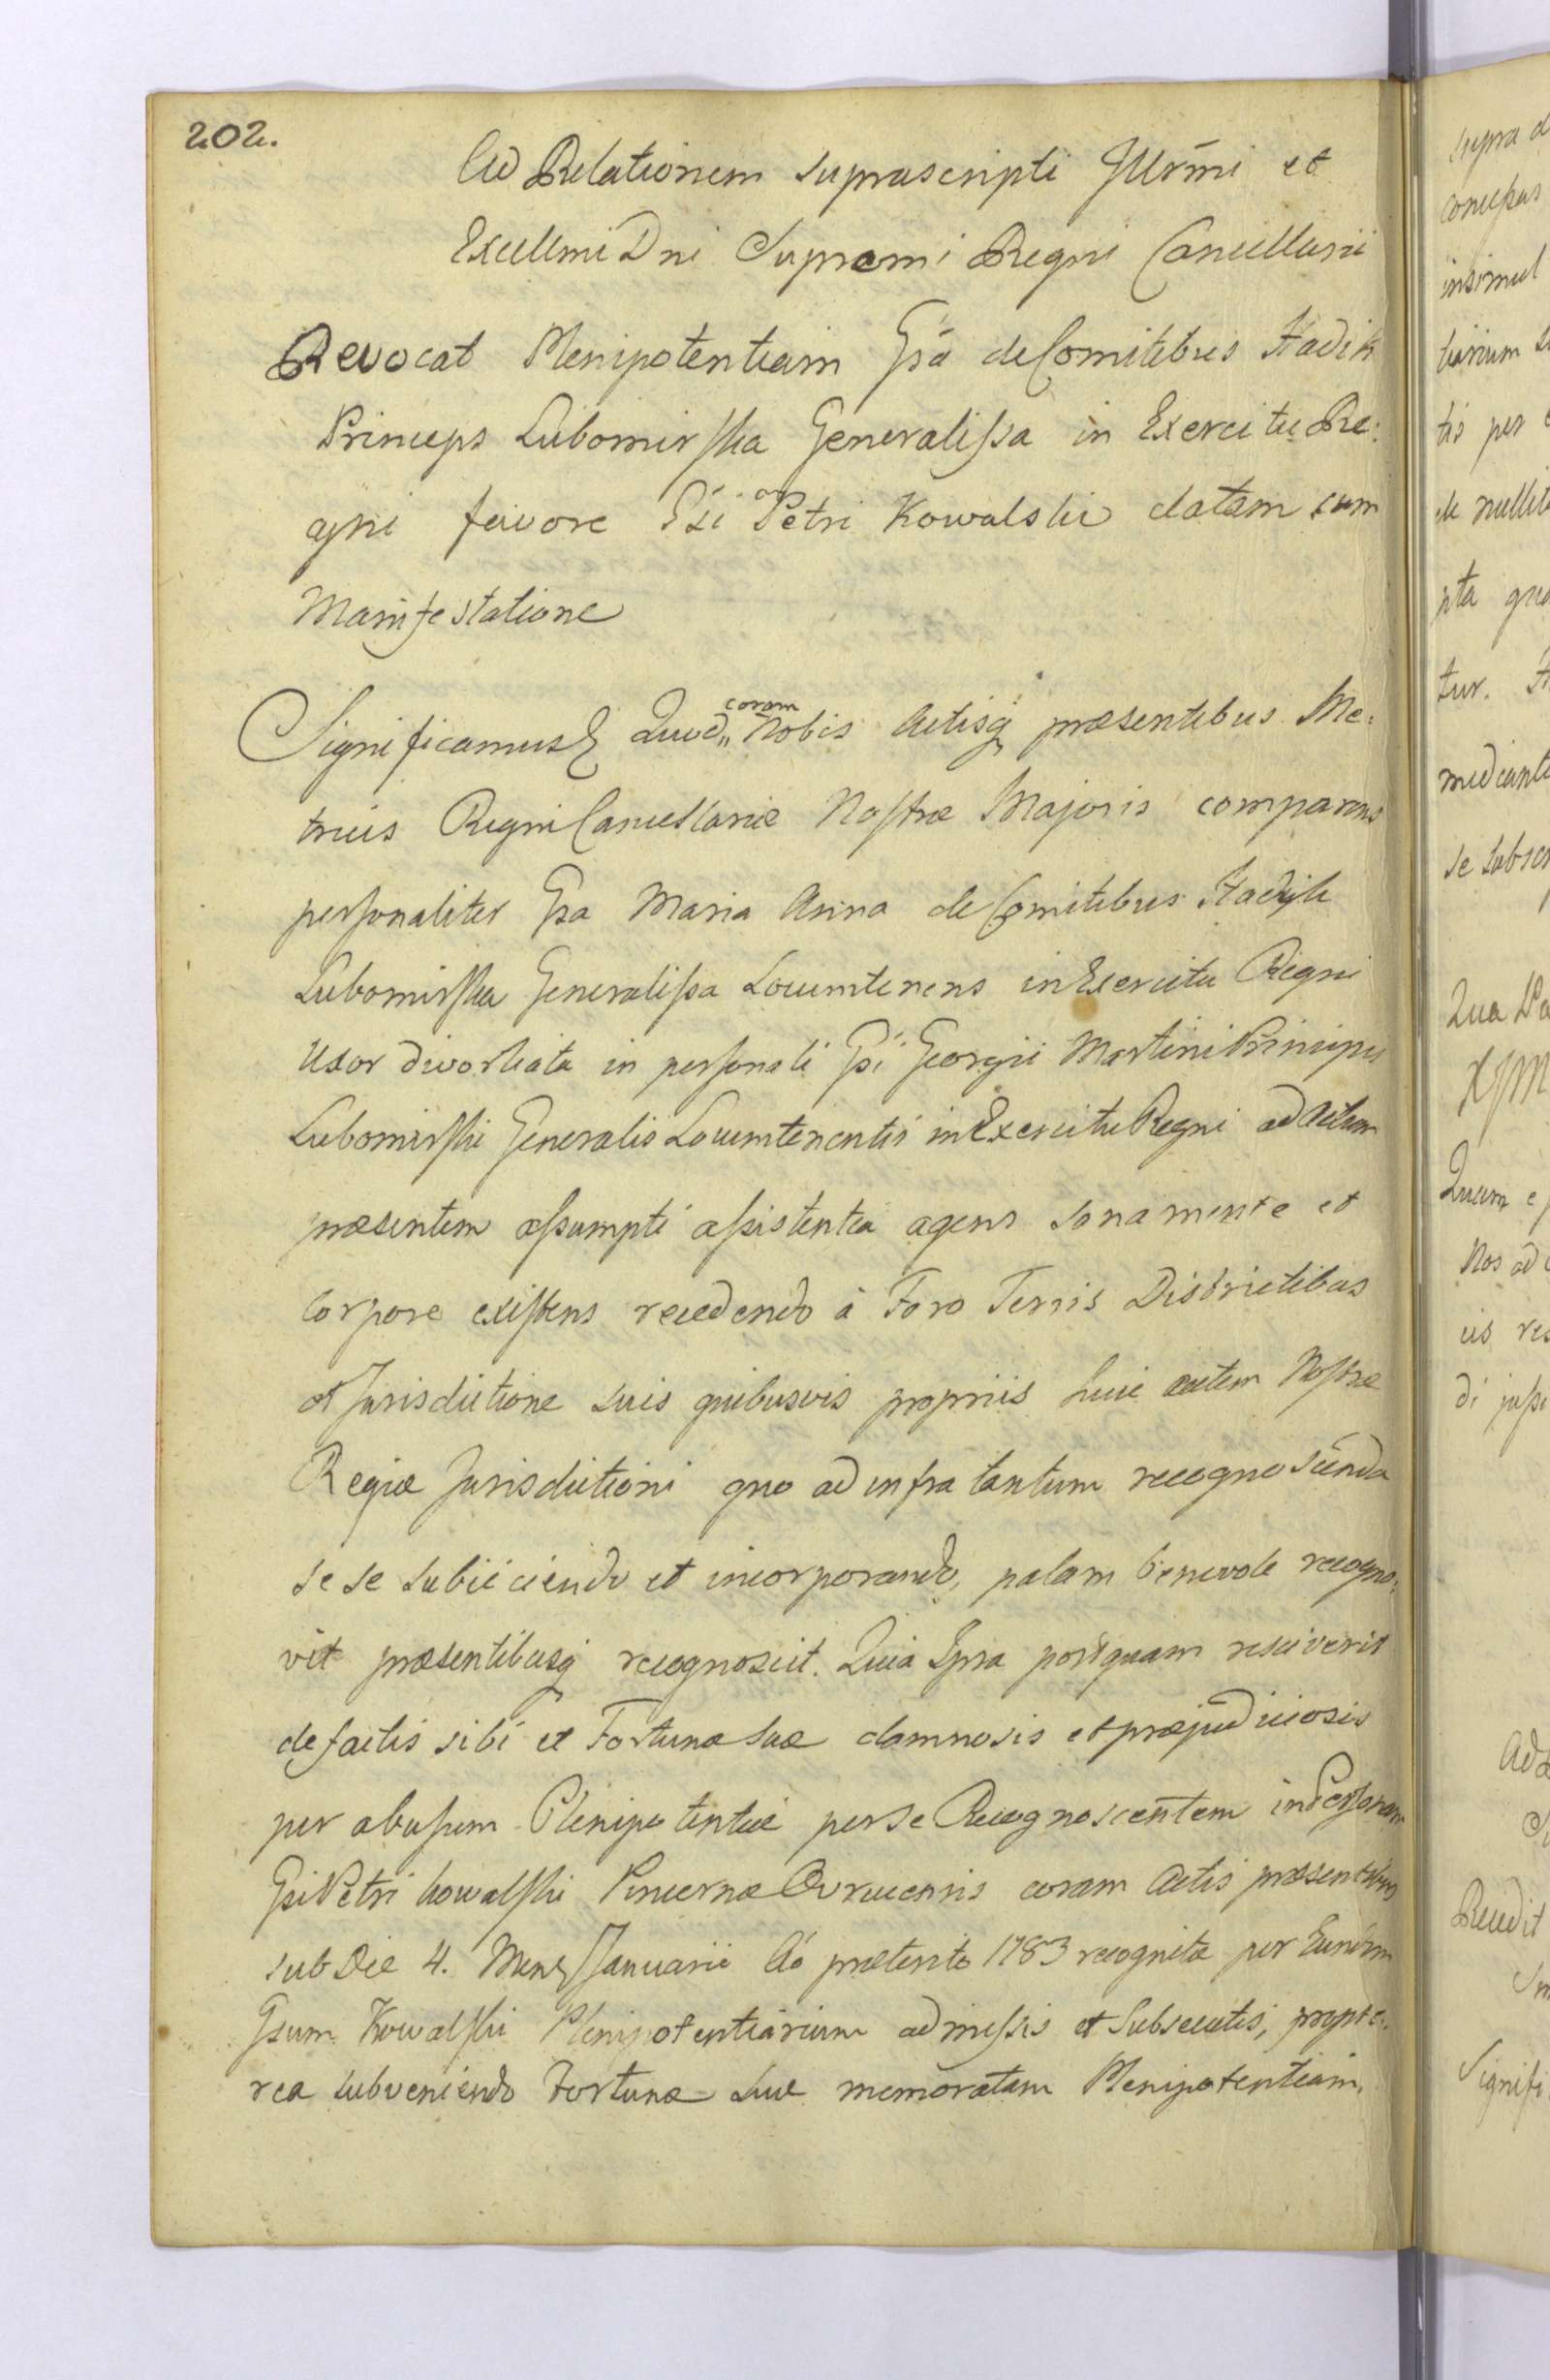 202.
Ad Relationem suprascripti Jllrmi et
Excellmi Dni Supremi Regni Cancellarii
Revocat Plenipotentiam Gsa de Comitibus Hadik
Princeps Lubomirska Generalissa in Exercitu Re:
gni favore Gsi Petri Kowalski datam cum
Manifestatione
Significamus Quod coram Nobis Actisq praesentibus Me:
tricis Regni Cancellariae Nostrae Majoris comparens
personaliter Gsa Maria Anna de Comitibus Hadyk
Lubomirska Generalissa Locumtenens in Exercitu Regni
Uxor divortiata in personali Gsi Georgii Martini Principis
Lubomirski Generalis Locumtenentis in Exercitu Regni ad Actum
praesentem assumpti assistentia agens sana mente et
Corpore existens recedendo à Foro Terris Districtibus
et Jurisdictione suis quibusvis propriis huic autem Nostrae
Regiae Jurisdictioni quo ad infra tantum recognoscenda
se se subiiciendo et incorporando, palam benevole recogno:
vit praesentibusq recognoscit. Quia Ipsa postquam resciverit
de factis sibi et Fortunae suae damnosis et praejudiciosis
per abusum Plenipotentiae per se Recognoscentem in Personam
Gsi Petri Kowalski Pincernae Ovrucensis coram Actis praesentibus
sub Die 4. Mens Januarii Ao praeterito 1783 recognitae per Eundem
Gsum Kowalski Plenipotentiarium admissis et subsecutis, propte:
rea subveniendo Fortunae suae memoratam Plenipotentiam,
supra d
insimul
tis per
de nullit
pta
tur.
mediante
se subscr
Qua
Quam
Nos ad
di
Ad
Recedit
Signifi